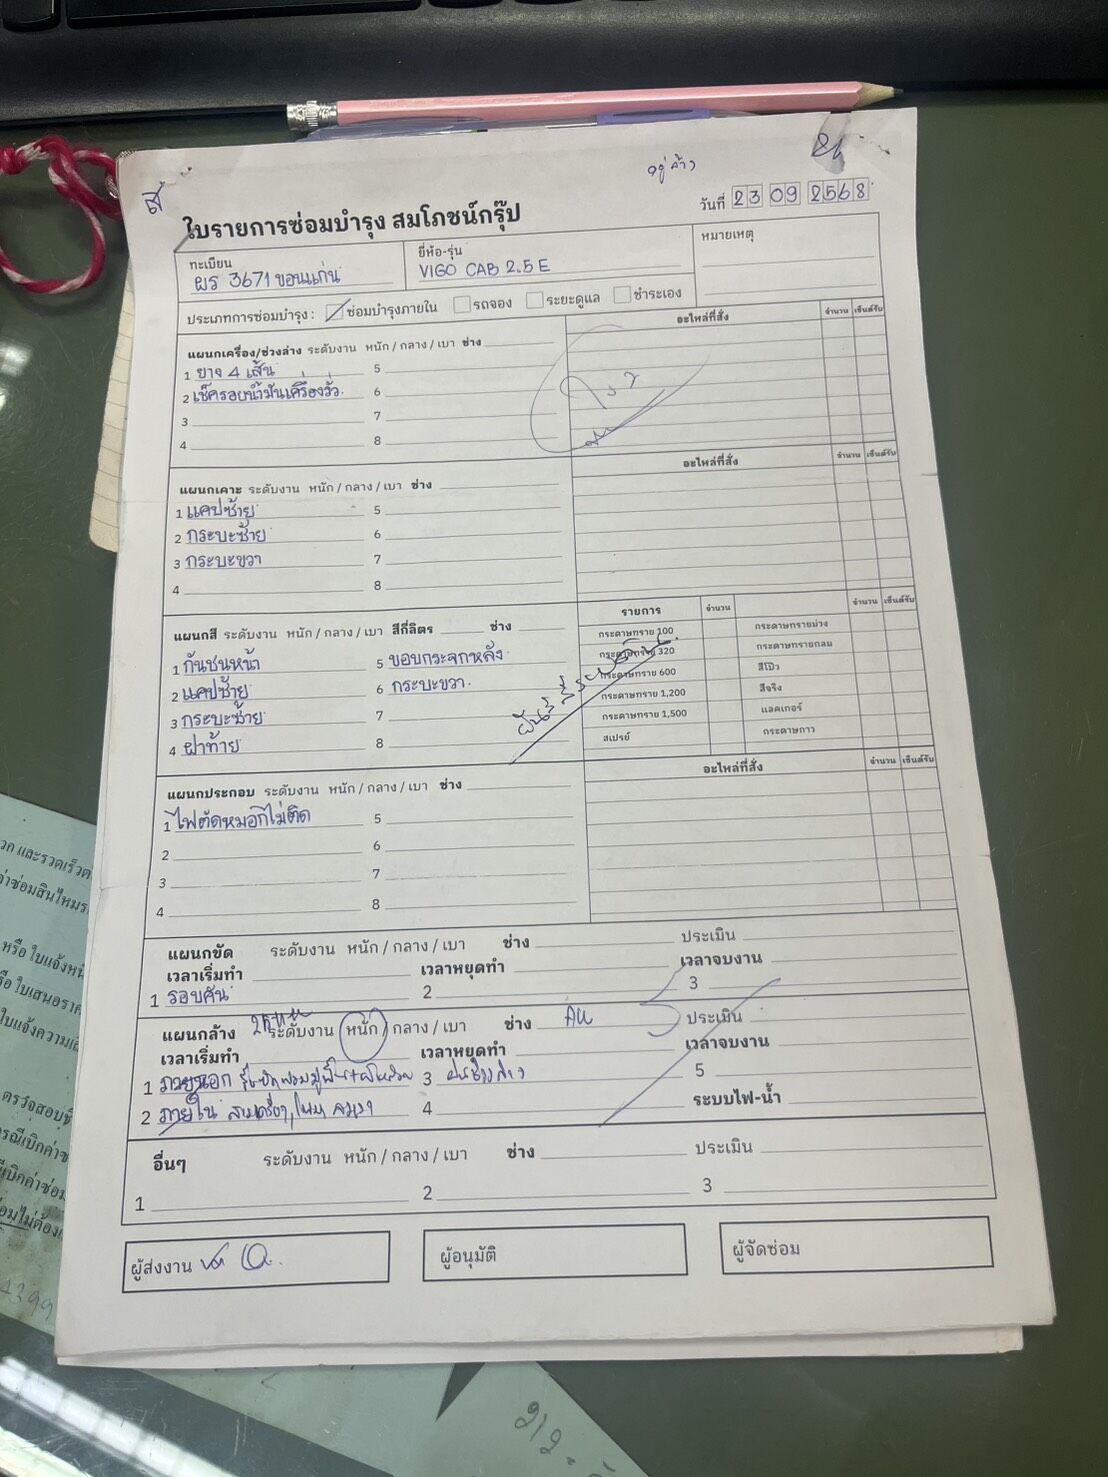 อยู่ล้าง
วันที่ 23 09 2568
ใบรายการซ่อมบำรุง สมโภชน์กรุ๊ป
ทะเบียน
ผร 3671 ขอนแก่น
ยี่ห้อ-รุ่น
VIGO CAB 2.5 E
หมายเหตุ
ประเภทการซ่อมบำรุง : ซ่อมบำรุงภายใน รถจอง ระยะดูแล ชำระเอง
แผนกเครื่อง/ช่วงล่าง ระดับงาน หนัก / กลาง / เบา ช่าง
อะไหล่ที่สั่ง จำนวน เซ็นต์รับ
1 ยาง 4 เส้น 5
2 เช็ครอบน้ำมันเครื่องรั่ว 6
3 7
4 8
แผนกเคาะ ระดับงาน หนัก / กลาง / เบา ช่าง
อะไหล่ที่สั่ง จำนวน เซ็นต์รับ
1 แคปซ้าย 5
2 กระบะซ้าย 6
3 กระบะขวา 7
4 8
แผนกสี ระดับงาน หนัก / กลาง / เบา สีกี่ลิตร ช่าง
รายการ จำนวน จำนวน เซ็นต์รับ
1 กันชนหน้า 5 ขอบกระจกหลัง
2 แคปซ้าย 6 กระบะขวา
3 กระบะซ้าย 7
4 ฝาท้าย 8
กระดาษทราย 100 กระดาษทรายม่วง
กระดาษทราย 320 กระดาษทรายกลม
กระดาษทราย 600 สีโป๊ว
กระดาษทราย 1,200 สีจริง
กระดาษทราย 1,500 แลคเกอร์
สเปรย์ กระดาษกาว
แผนกประกอบ ระดับงาน หนัก / กลาง / เบา ช่าง
อะไหล่ที่สั่ง จำนวน เซ็นต์รับ
1 ไฟตัดหมอกไม่ติด 5
2 6
3 7
4 8
แผนกขัด ระดับงาน หนัก / กลาง / เบา ช่าง ประเมิน
เวลาเริ่มทำ เวลาหยุดทำ เวลาจบงาน
1 รอบคัน 2 3
แผนกล้าง ระดับงาน หนัก / กลาง / เบา ช่าง ประเมิน
เวลาเริ่มทำ เวลาหยุดทำ เวลาจบงาน
1 ภายนอก 3 5
2 ภายใน 4 ระบบไฟ-น้ำ
อื่นๆ ระดับงาน หนัก / กลาง / เบา ช่าง ประเมิน
1 2 3
ผู้ส่งงาน
ผู้อนุมัติ
ผู้จัดซ่อม
4399
212